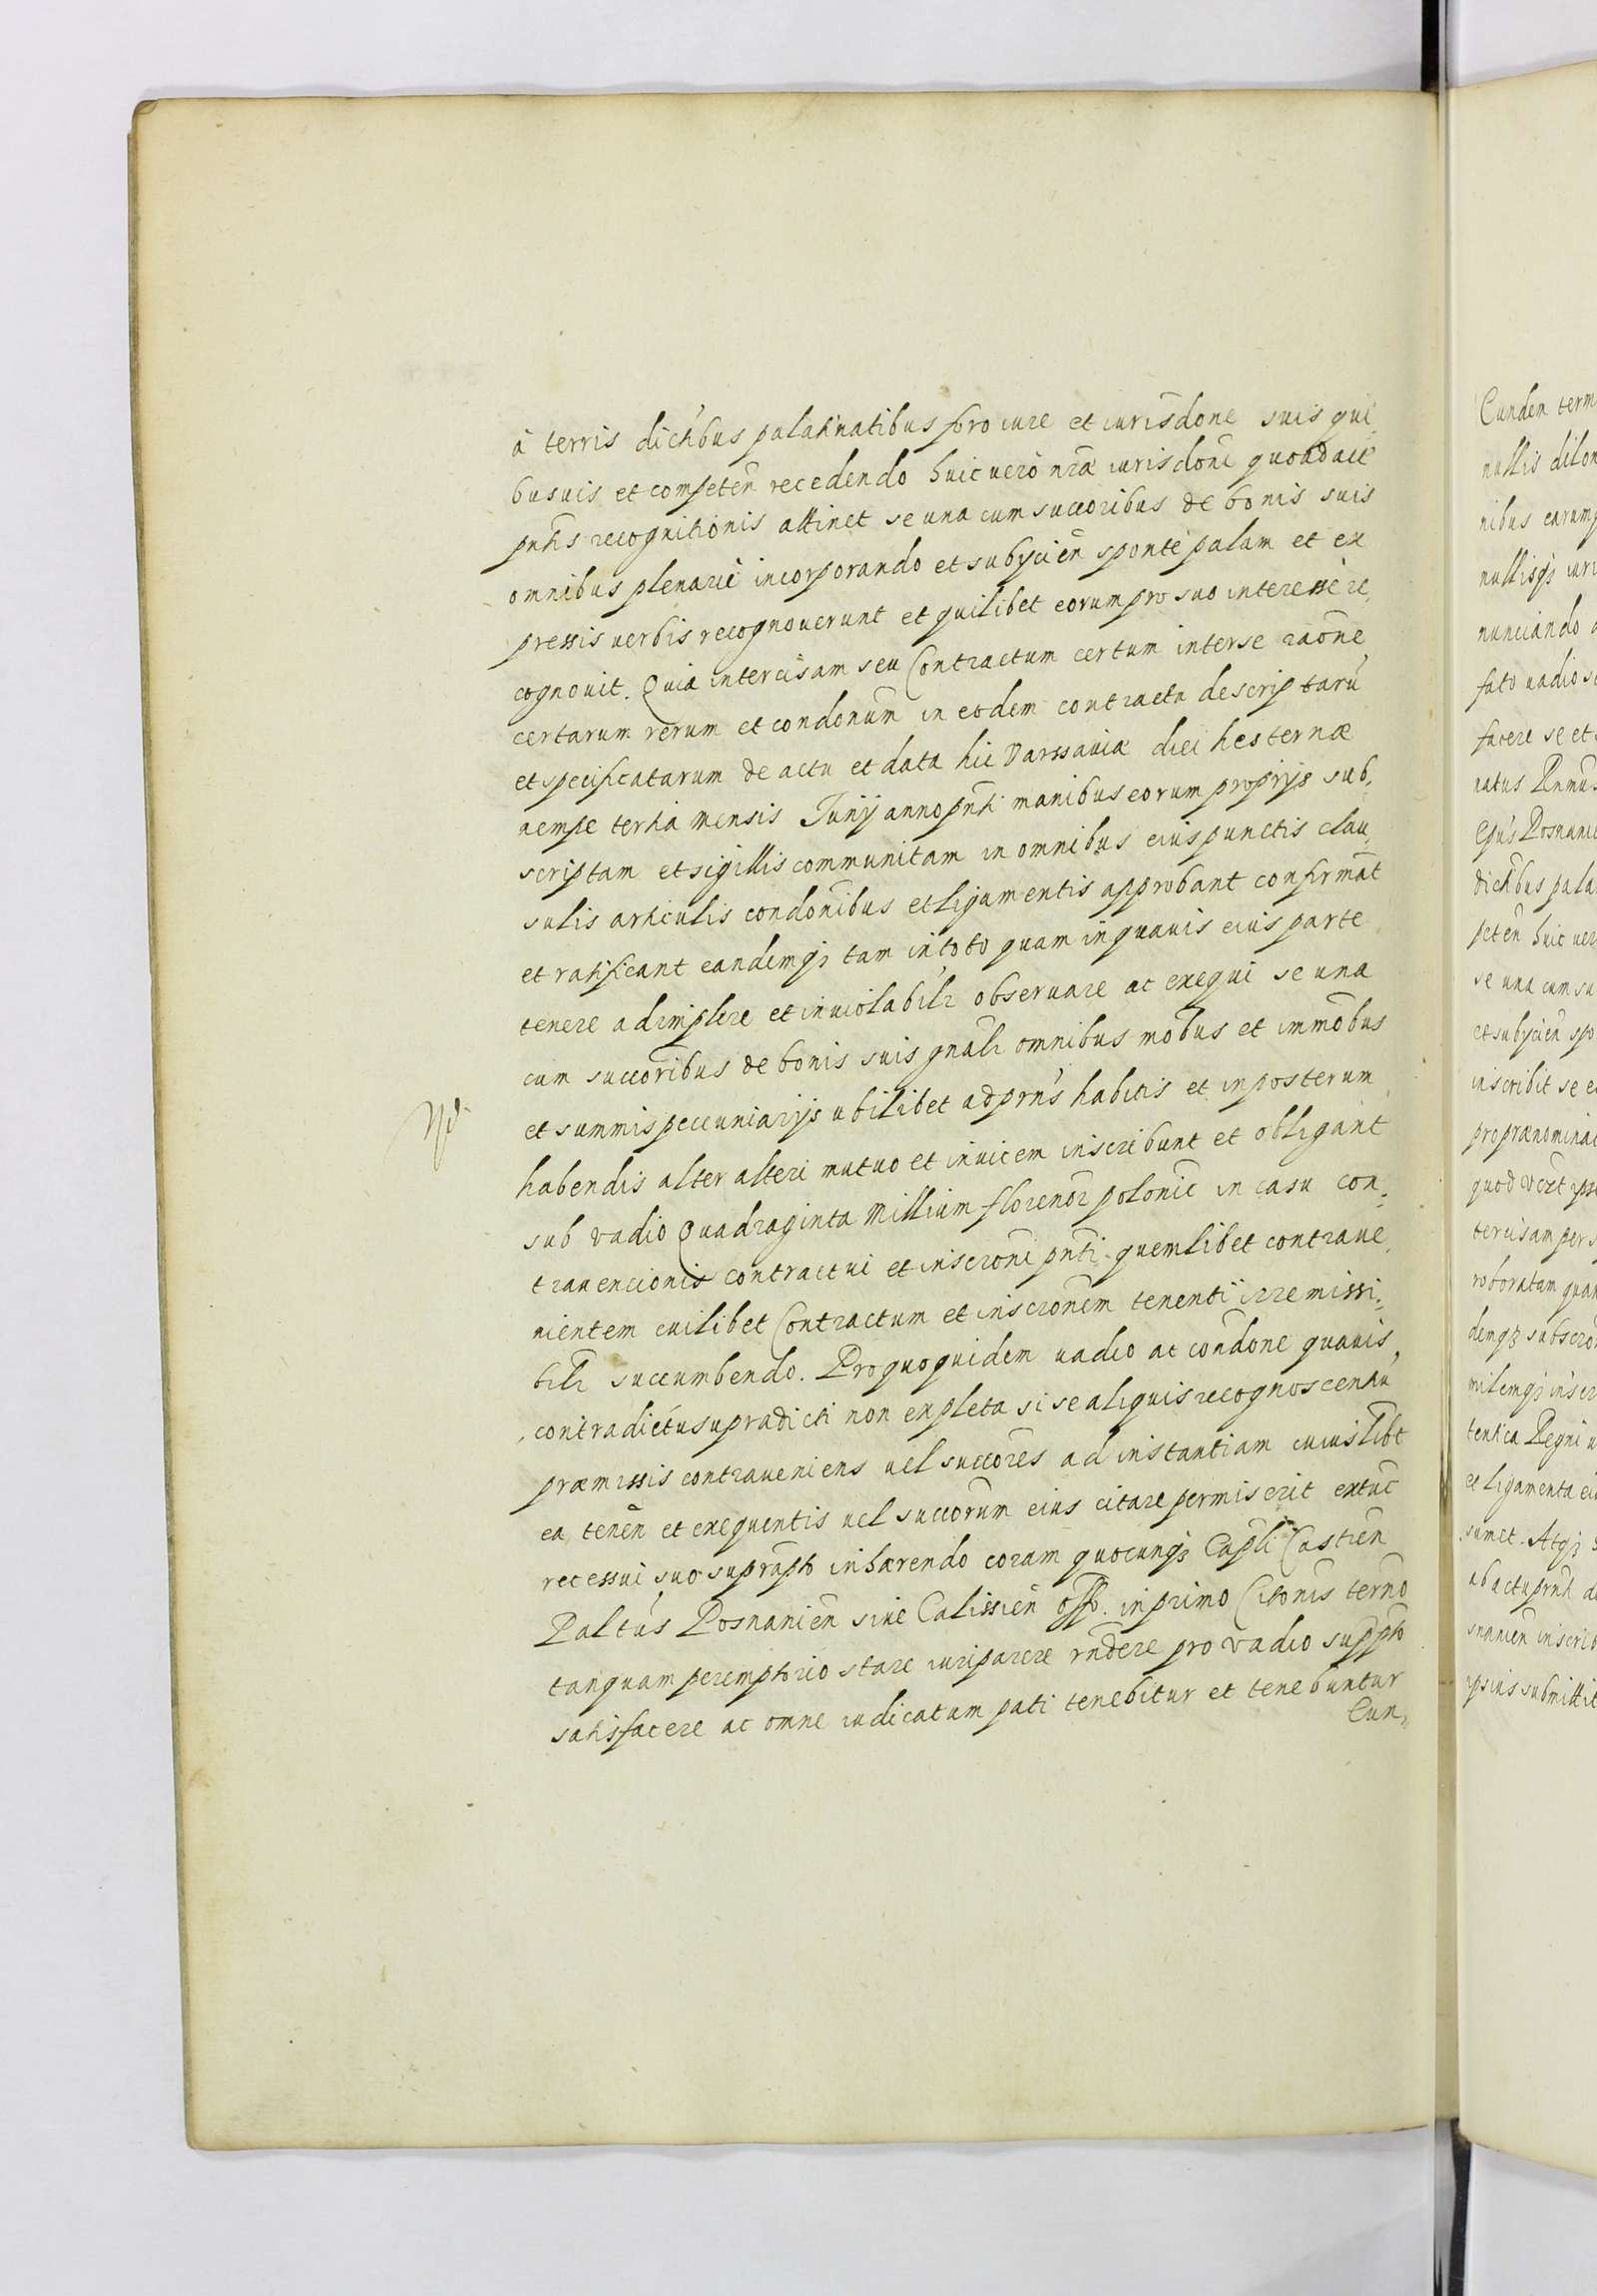 à terris dictibus palatinatibus foro iure et iurisdōne suis qui,
busuis et competeñ recedendo huic uerò nr̃æ iurisdōni quoad actũ
pñtis recognitionis attinet se una cum succoribus de bonis suis
omnibus plenariè incorporando et subijcieñ sponte palam et ex
pressis uerbis recognouerunt et quilibet eorum pro suo interesse re,
cognouit. Quia intercisam seu Contractum certum inter se raōne
certarum rerum et condōnum in eodem contractu descriptarũ
et specificatarum de actu et data hic Varssauiæ diei hesternæ
nempe tertia mensis Junij anno pñti manibus eorum proprijs sub,
scriptam et sigillis communitam in omnibus eius punctis clau,
sulis articulis condōnibus et ligamentis approbant confirmãt
et ratificant eandemqȝ tam in toto quam in quauis eius parte
tenere adimplere et inuiolabilr obseruare ac exequi se una
cum succōribus de bonis suis gñalr omnibus mōbus et immōbus
et summis peccuniarijs ubilibet ad prñs habitis et in posterum
habendis alter alteri mutuo et inuicem inscribunt et obligant
sub vadio Quadraginta Millium florenor polonić in casu con,
trauencionis contractui et inscrōni pñti quemlibet contraue,
nientem cuilibet Contractum et inscrōnem tenenti irremissi,
bilr succumbendo. Pro quo quidem uadio ac condōne quauis
contradictũ supradicti non expleta si se aliquis recognoscentiũ
præmissis contraueniens uel succōres ad instantiam cuiuslibt
ea teneñ et exequentis uel succōrum eius citare permiserit extũc
recessui suo suprãpto inhærendo coram quocunqȝ Capli Castreñ
Paltũs Posnanieñ siue Calissieñ offo. in primo Citōnis termo
tanquam peremptorio stare iuri parere rñdere pro vadio suppto
satisfacere ac omne iudicatum pati tenebitur et tenebuntur
Eun,
Cunden term
nullis dilon
nibus earumq
nullisqȝ iuri
nunciando
fato uadio s
facere se et
Posnani
dictibus pala
peteñ huic uer
se una cum su
et subijcieñ spo
inscribit se e
pro prænominat
quod
tercisam per s
roboratam quam
demqȝ subscro
milemqȝ inscr
tentica Regni u
et ligamenta ei
sumet. Atqȝ
ab actu prñti d
snanieñ inscrib
ipsius submittit